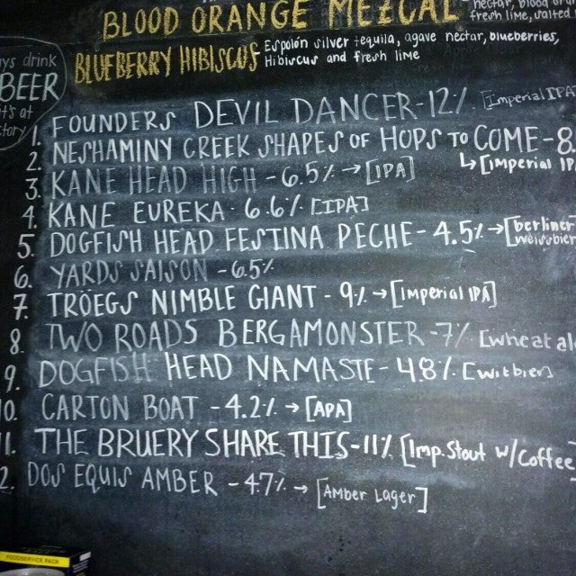 BLOOD ORANGE MEZCAL
fresh lime, salted
BLUEBERRY HIBISCUS Espolón silver tequila, agave nectar, blueberries,
Hibiscus and fresh lime
ys drink
BEER
it's at
tory
1. FOUNDERS DEVIL DANCER-12% [Imperial IPA]
2. NESHAMINY CREEK SHAPES OF HOPS TO COME-8.
↳[imperial IP
3. KANE HEAD HIGH - 6.5% → [IPA]
4. KANE EUREKA - 6.6% [IPA]
5. DOGFISH HEAD FESTINA PECHE - 4.5% → [berliner
weissbier
6. YARDS SAISON - 6.5%
7. TROEGS NIMBLE GIANT - 9% → [Imperial IPA]
8. TWO ROADS BERGAMONSTER - 7% [wheat al
9. DOGFISH HEAD NAMASTE - 4.8% [witbier]
0. CARTON BOAT - 4.2% → [APA]
1. THE BRUERY SHARE THIS - 11% [Imp. Stout w/Coffee
2. DOS EQUIS AMBER - 4.7% → [Amber Lager]
FOODSERVICE PACK